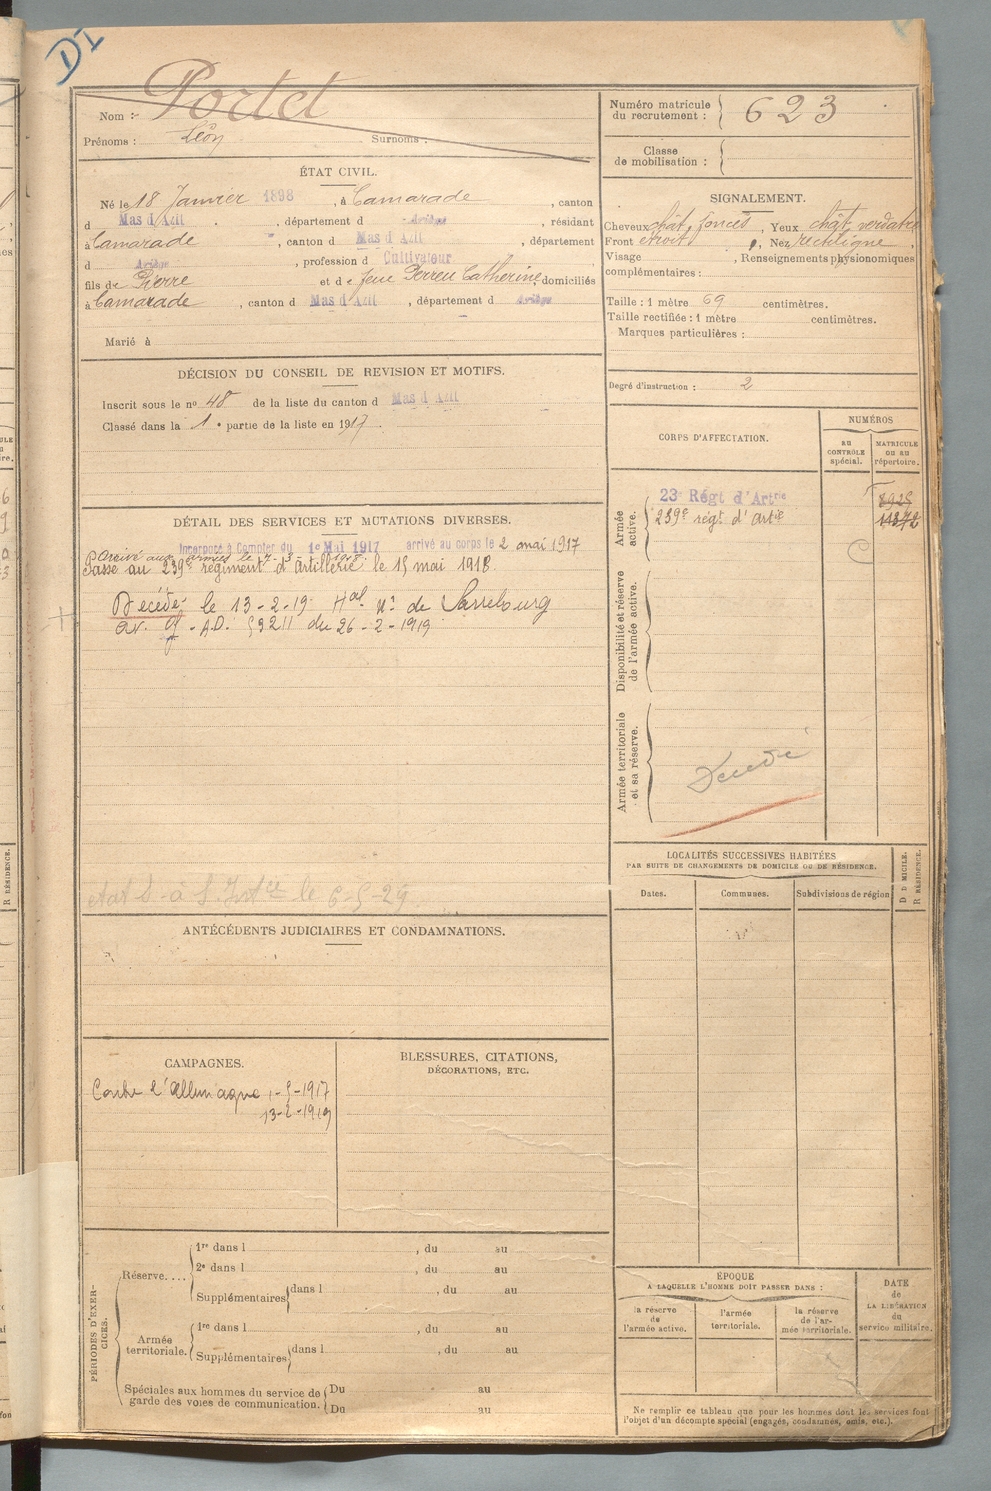 DI
Nom : Portet
Prénoms : Léon Surnoms :
ÉTAT CIVIL.
Né le 18 Janvier 1898, à Camarade, canton
d Mas d'Azil, département d Ariège, résidant
à Camarade, canton d Mas d'Azil, département
d Ariège, profession d Cultivateur
fils de Pierre et de feue Perreu Catherine domiciliés
à Camarade, canton d Mas d'Azil, département d Ariège
Marié à
DÉCISION DU CONSEIL DE REVISION ET MOTIFS.
Inscrit sous le nº 48 de la liste du canton d Mas d'Azil
Classé dans la 1e partie de la liste en 1917.
DÉTAIL DES SERVICES ET MUTATIONS DIVERSES.
Incorporé à Compter du 1er Mai 1917 arrivé au corps le 2 mai 1917
Arrivé aux armées le 7-3 1918.
Passé au 239e régiment d'artillerie le 15 mai 1918.
Décédé le 13-2-19 Hal nº de Sarrebourg
av. off. A.D. 59211 du 26-2-1919
le 6-5-29
ANTÉCÉDENTS JUDICIAIRES ET CONDAMNATIONS.
CAMPAGNES.
Contre l'Allemagne 1-5-1917
13-2-1919
BLESSURES, CITATIONS,
DÉCORATIONS, ETC.
PÉRIODES D'EXERCICES.
Réserve....
1re dans l , du au
2e dans l , du au
Supplémentaires dans l , du au
Armée territoriale.
1re dans l , du au
Supplémentaires dans l , du au
Spéciales aux hommes du service de Du au
garde des voies de communication. Du au
Numéro matricule
du recrutement : 623
Classe
de mobilisation :
SIGNALEMENT.
Cheveux chât. foncés, Yeux chât. verdâtre
Front étroit, Nez rectiligne,
Visage , Renseignements physionomiques
complémentaires :
Taille : 1 mètre 69 centimètres.
Taille rectifiée : 1 mètre centimètres.
Marques particulières :
Degré d'instruction : 2
CORPS D'AFFECTATION.
NUMÉROS
AU CONTRÔLE spécial.
MATRICULE OU AU répertoire.
Armée active.
23e Régt d'Artrie 8925
239e régt d'artie 11372
C
Disponibilité et réserve de l'armée active.
Armée territoriale et sa réserve.
Décédé
LOCALITÉS SUCCESSIVES HABITÉES
PAR SUITE DE CHANGEMENTS DE DOMICILE OU DE RÉSIDENCE.
Dates. Communes. Subdivisions de région
D DOMICILE. R RÉSIDENCE.
ÉPOQUE
A LAQUELLE L'HOMME DOIT PASSER DANS :
la réserve de l'armée active.
l'armée territoriale.
la réserve de l'armée territoriale.
DATE de LA LIBÉRATION du service militaire.
Ne remplir ce tableau que pour les hommes dont les services font
l'objet d'un décompte spécial (engagés, condamnés, omis, etc.).